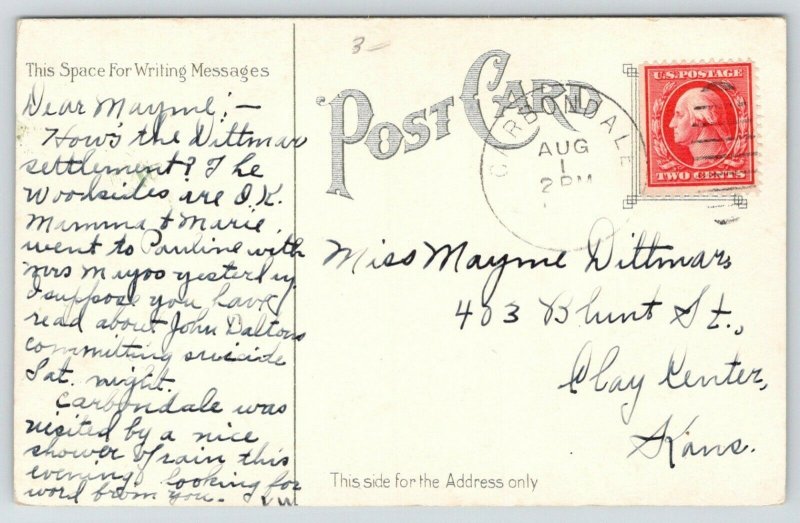 3
This Space For Writing Messages
POST CARD
CARBONDALE
AUG
1
2 PM
U.S. POSTAGE
TWO CENTS
Dear Mayme:—
How's the Dittmar
settlement? The
Woodsides are O.K.
Mamma & Marie
went to Pauline with
Mrs Mayos yesterday
I suppose you have
read about John Daltons
committing suicide
Sat. night.
Carbondale was
visited by a nice
shower of rain this
evening looking for
word from you.
Miss Mayme Dittmar,
403 Blunt St.,
Clay Center,
Kans.
This side for the Address only